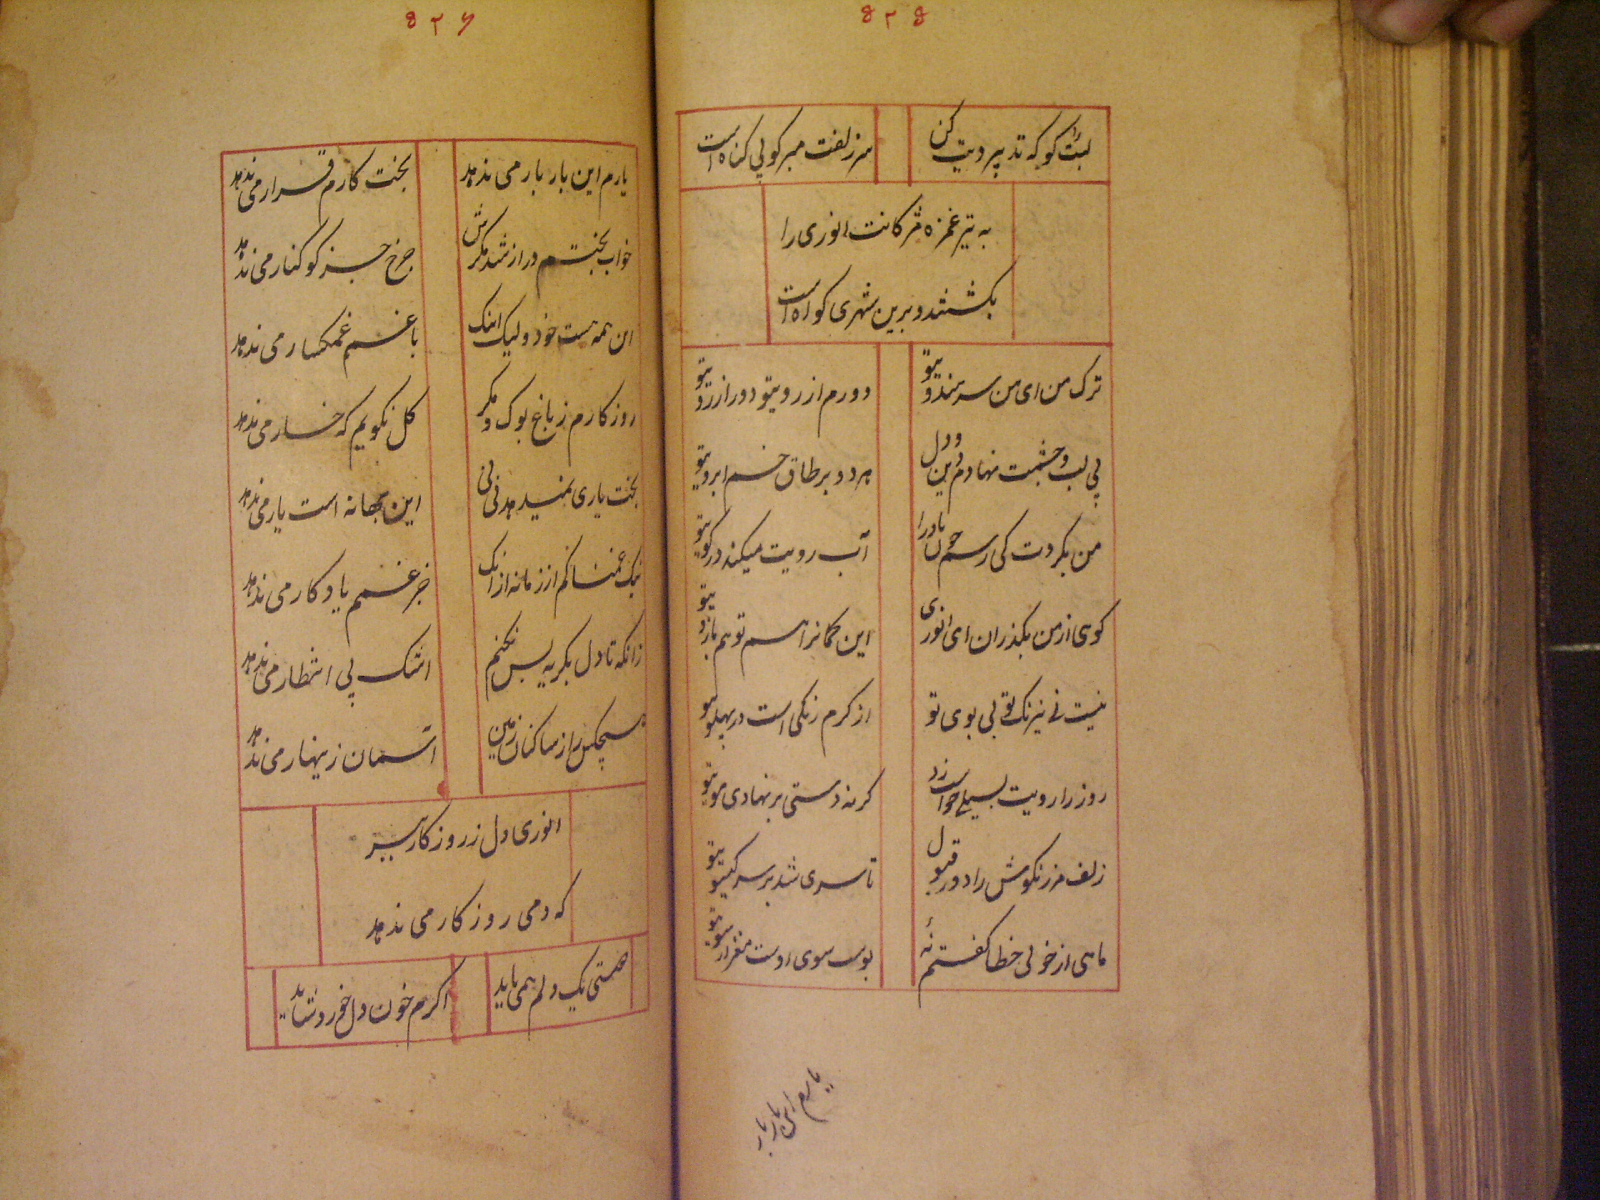 ۵۲۵
لبت کو که تدبیر دیت کن
سر زلفت مبر کو بی کناه است
به تیر غمزه مژکانت انوری را
بکشتند و برین شهری کواه است
ترک من ای من سر هندو یتو
دورم از رویتو دور از رویتو
بی لب و چشمت نهادم دین و دل
هر دو بر طاق خم ابرویتو
من بکردت کی رسم چون باد را
آب رویت میکند در کویتو
کوی از من بکذران ای انوری
این کمانرا هم تو هم بازویتو
نیست نی نیرنک تو بی بوی تو
از کرم رنکی است در پهلویتو
روز را رویت بسیلی خواست زد
کرنه دستی بر نهادی مویتو
زلف مرزنکوش را دور قبول
تا سری شد بر سر کیسویتو
ماهی از خوبی خطا کفتم نهٔ
بوسه سوی دوست
یارم این بار بار
۵۲۶
یارم این بار بار می ندهد
بخت کارم قرار می ندهد
خواب بختم دراز شد مکرش
چرخ جز کوکنار می ندهد
این همه هست خود ولیک اینک
با غم غمکسار می ندهد
روزکارم ز باغ بوک و مکر
کل نکویم که خار می ندهد
بخت یاری نمیدهد نی نی
این بهانه است یار می ندهد
نیک غمناکم از زمانه از آنک
جز غمم یادکار می ندهد
زانکه تا دل بکریه پس نکنم
اشک بی انتظار می ندهد
هیچکس را ز ساکنان زمین
آسمان زینهار می ندهد
انوری دل ز روزکار ببر
که دمی روزکار می ندهد
هستی یک دلم همی باید
اکرم خون دل خورد شاید